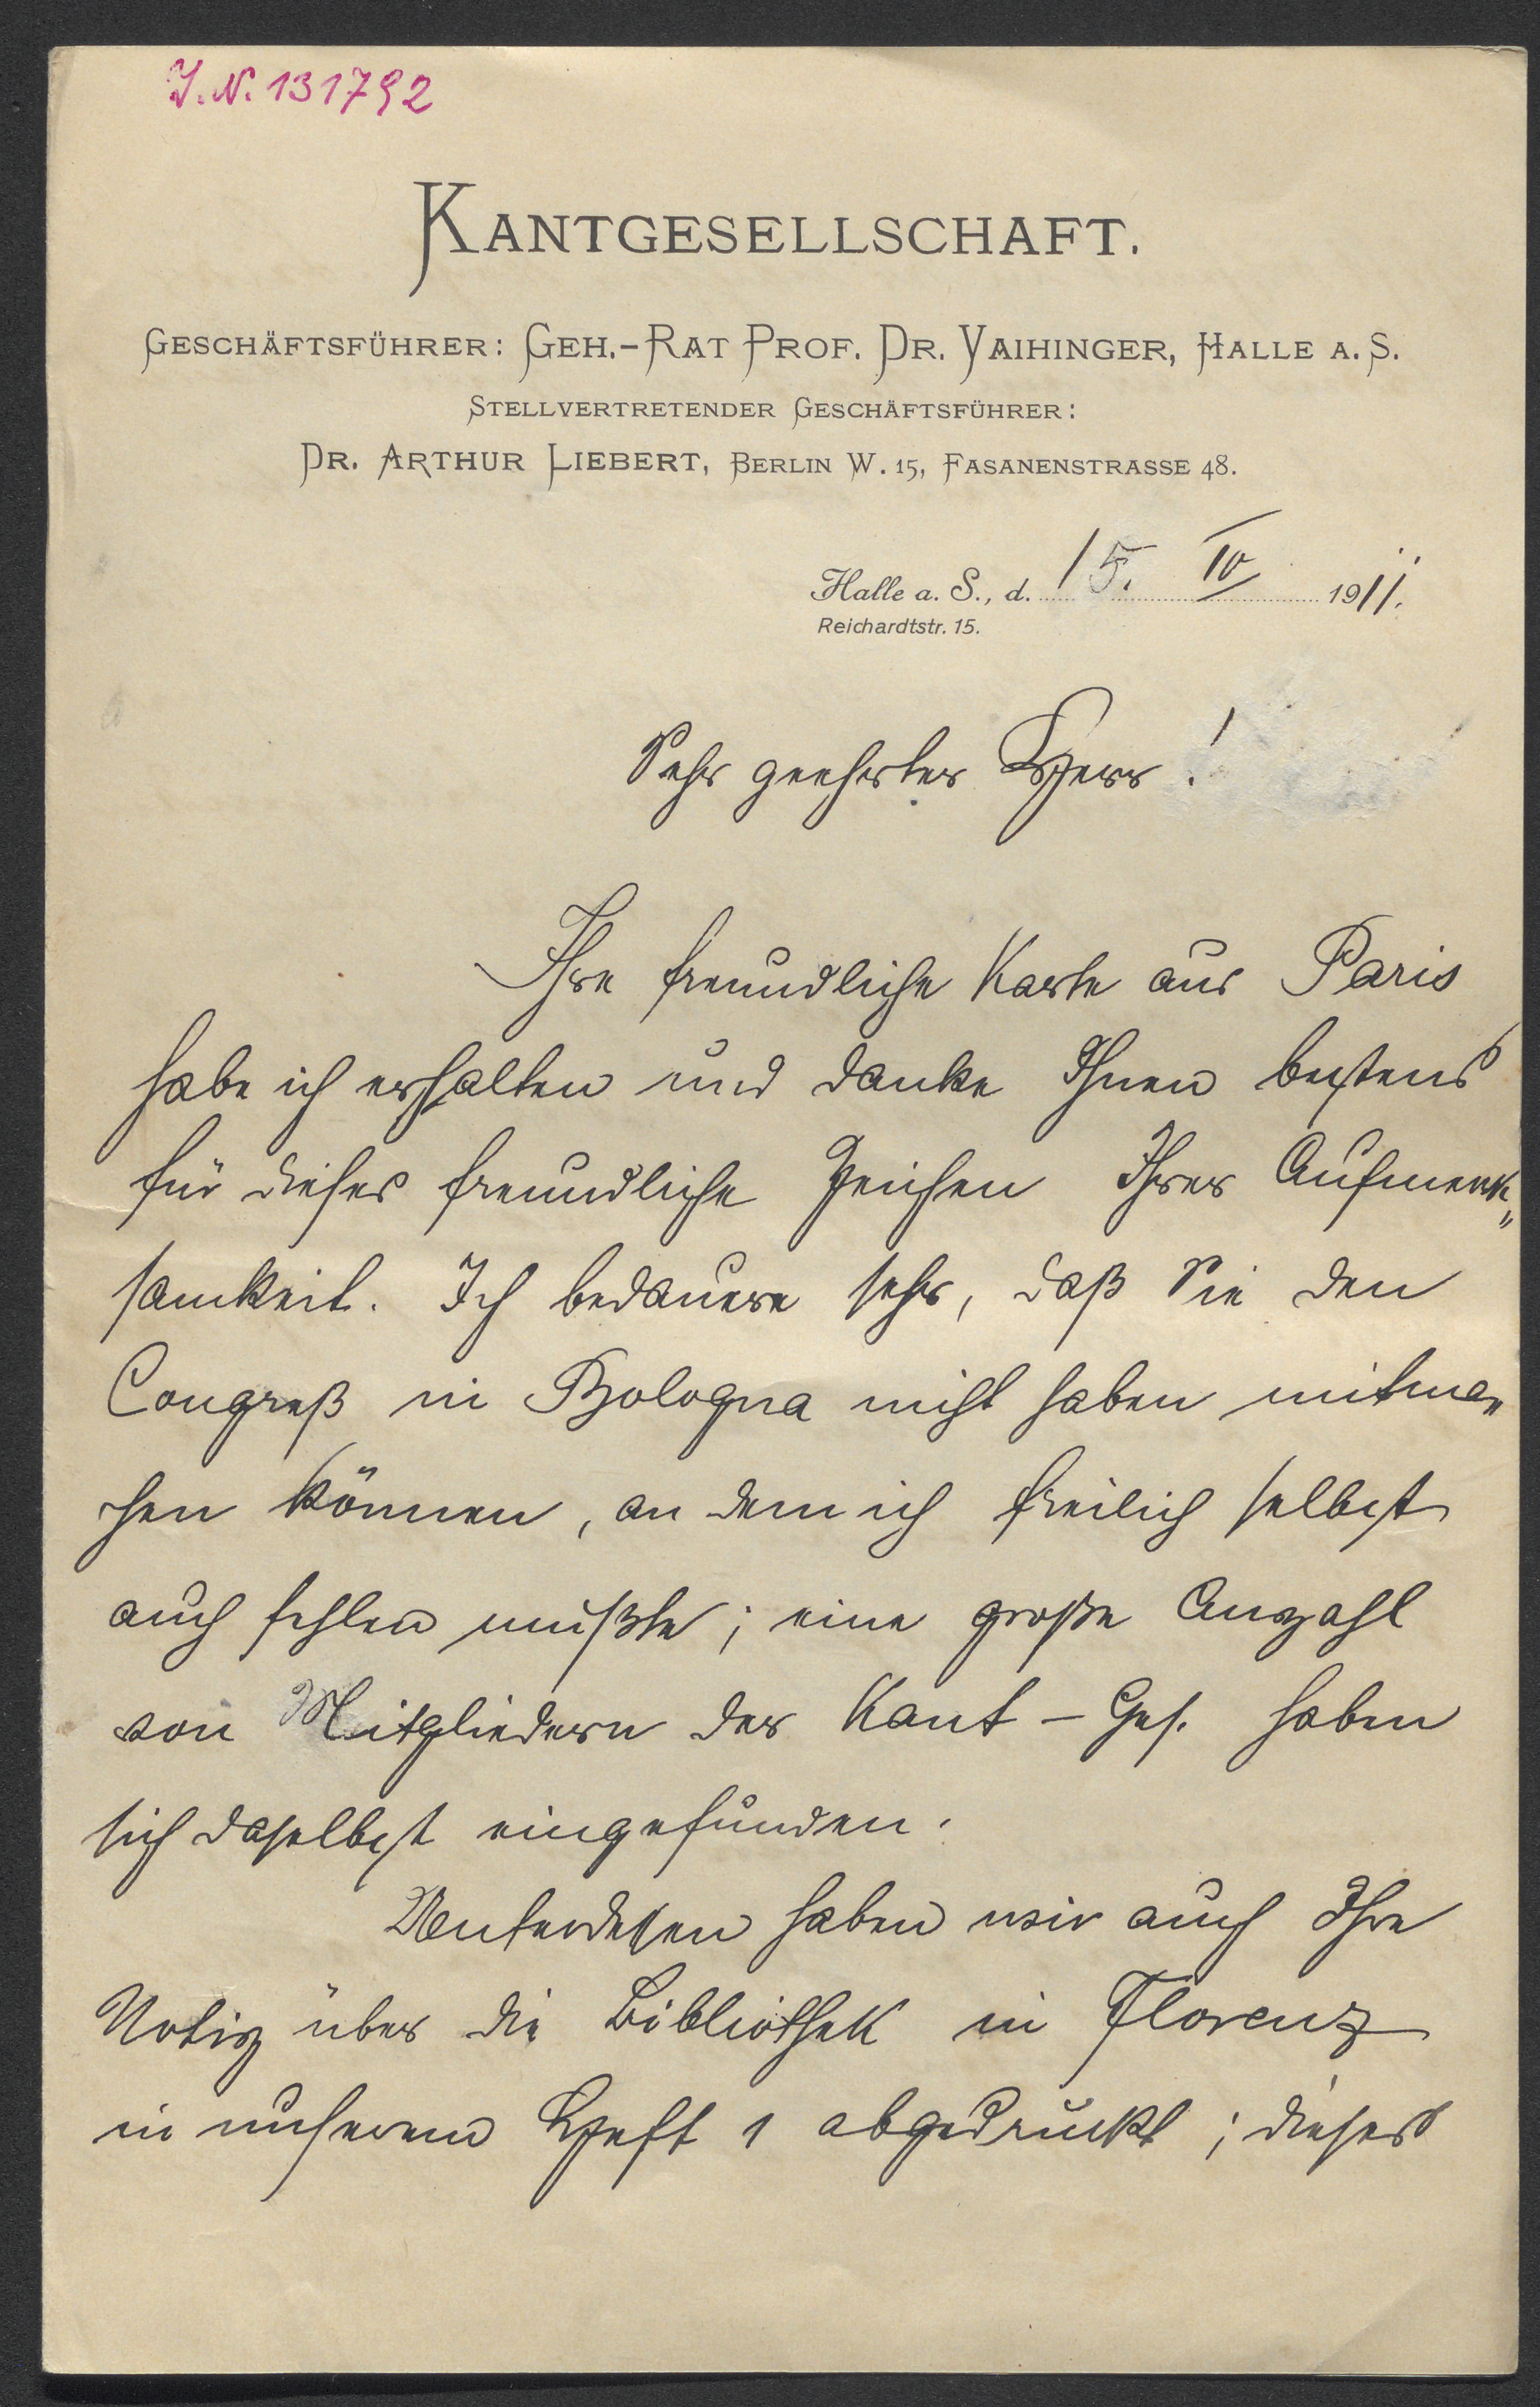 J.N. 131792
KANTGESELLSCHAFT.
GESCHÄFTSFÜHRER: GEH.-RAT PROF. DR. VAIHINGER, HALLE A. S.
STELLVERTRETENDER GESCHÄFTSFÜHRER:
DR. ARTHUR LIEBERT, BERLIN W. 15, FASANENSTRASSE 48.
Halle a. S., d. 15. IV 1911.
Reichardtstr. 15.
Sehr geehrter Herr!
Ihre freundliche Karte aus Paris
habe ich erhalten und danke Ihnen bestens
für dieses freundliche Zeichen Ihrer Aufmerk„
samkeit. Ich bedauere sehr, daß Sie den
Congreß in Bologna nicht haben mitma„
chen können, an dem ich freilich selbst
auch fehlen mußte; eine große Anzahl
von Mitgliedern der Kant-Ges. haben
sich daselbst eingefunden.
Unterdessen haben wir auch Ihre
Notiz über die Bibliothek in Florenz
in unserem Heft 1 abgedruckt; dieses